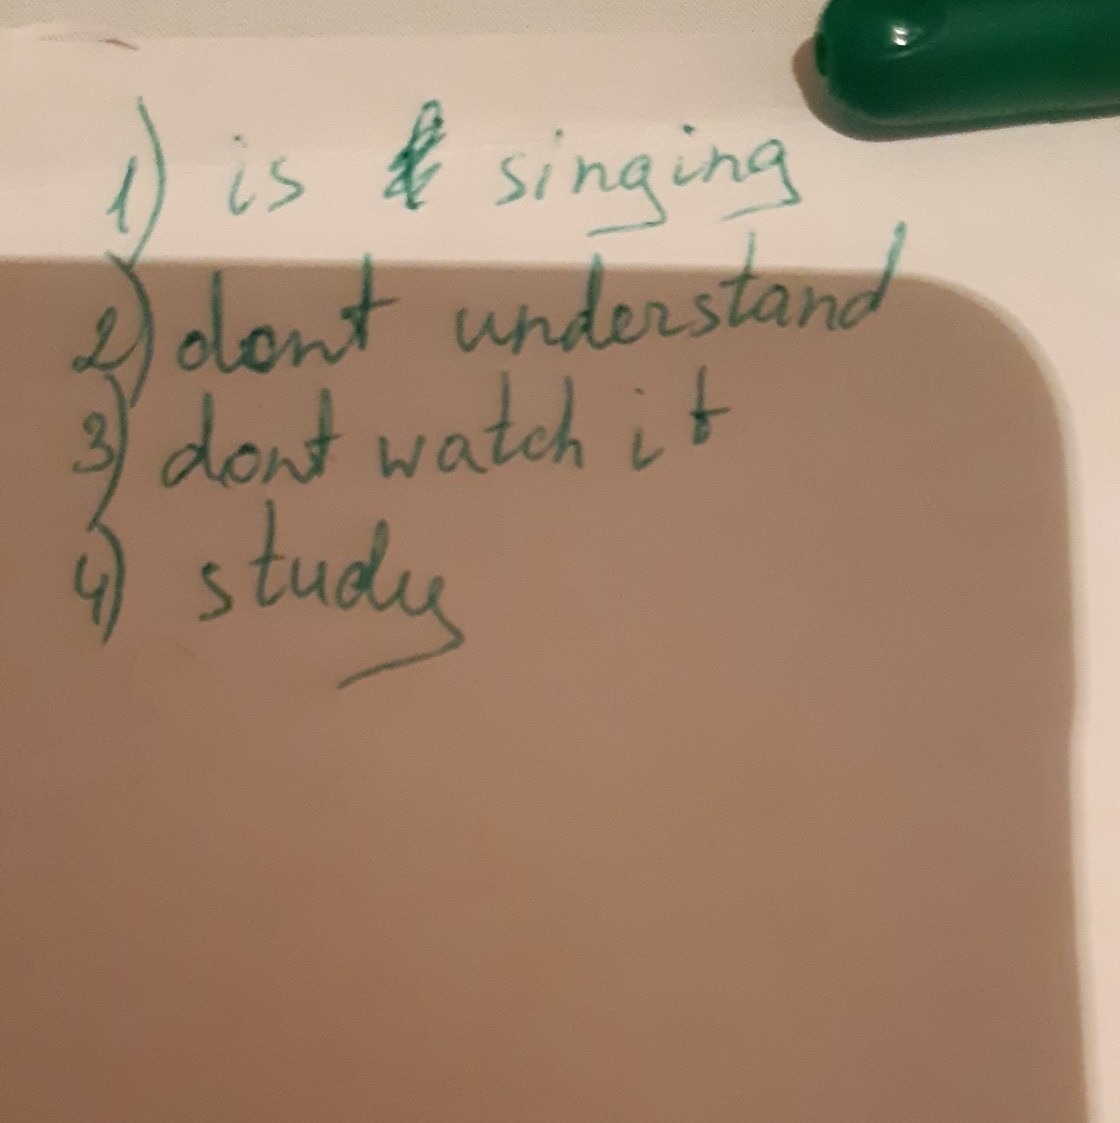 1) is singing
2) dont understand
3) dont watch it
4) study